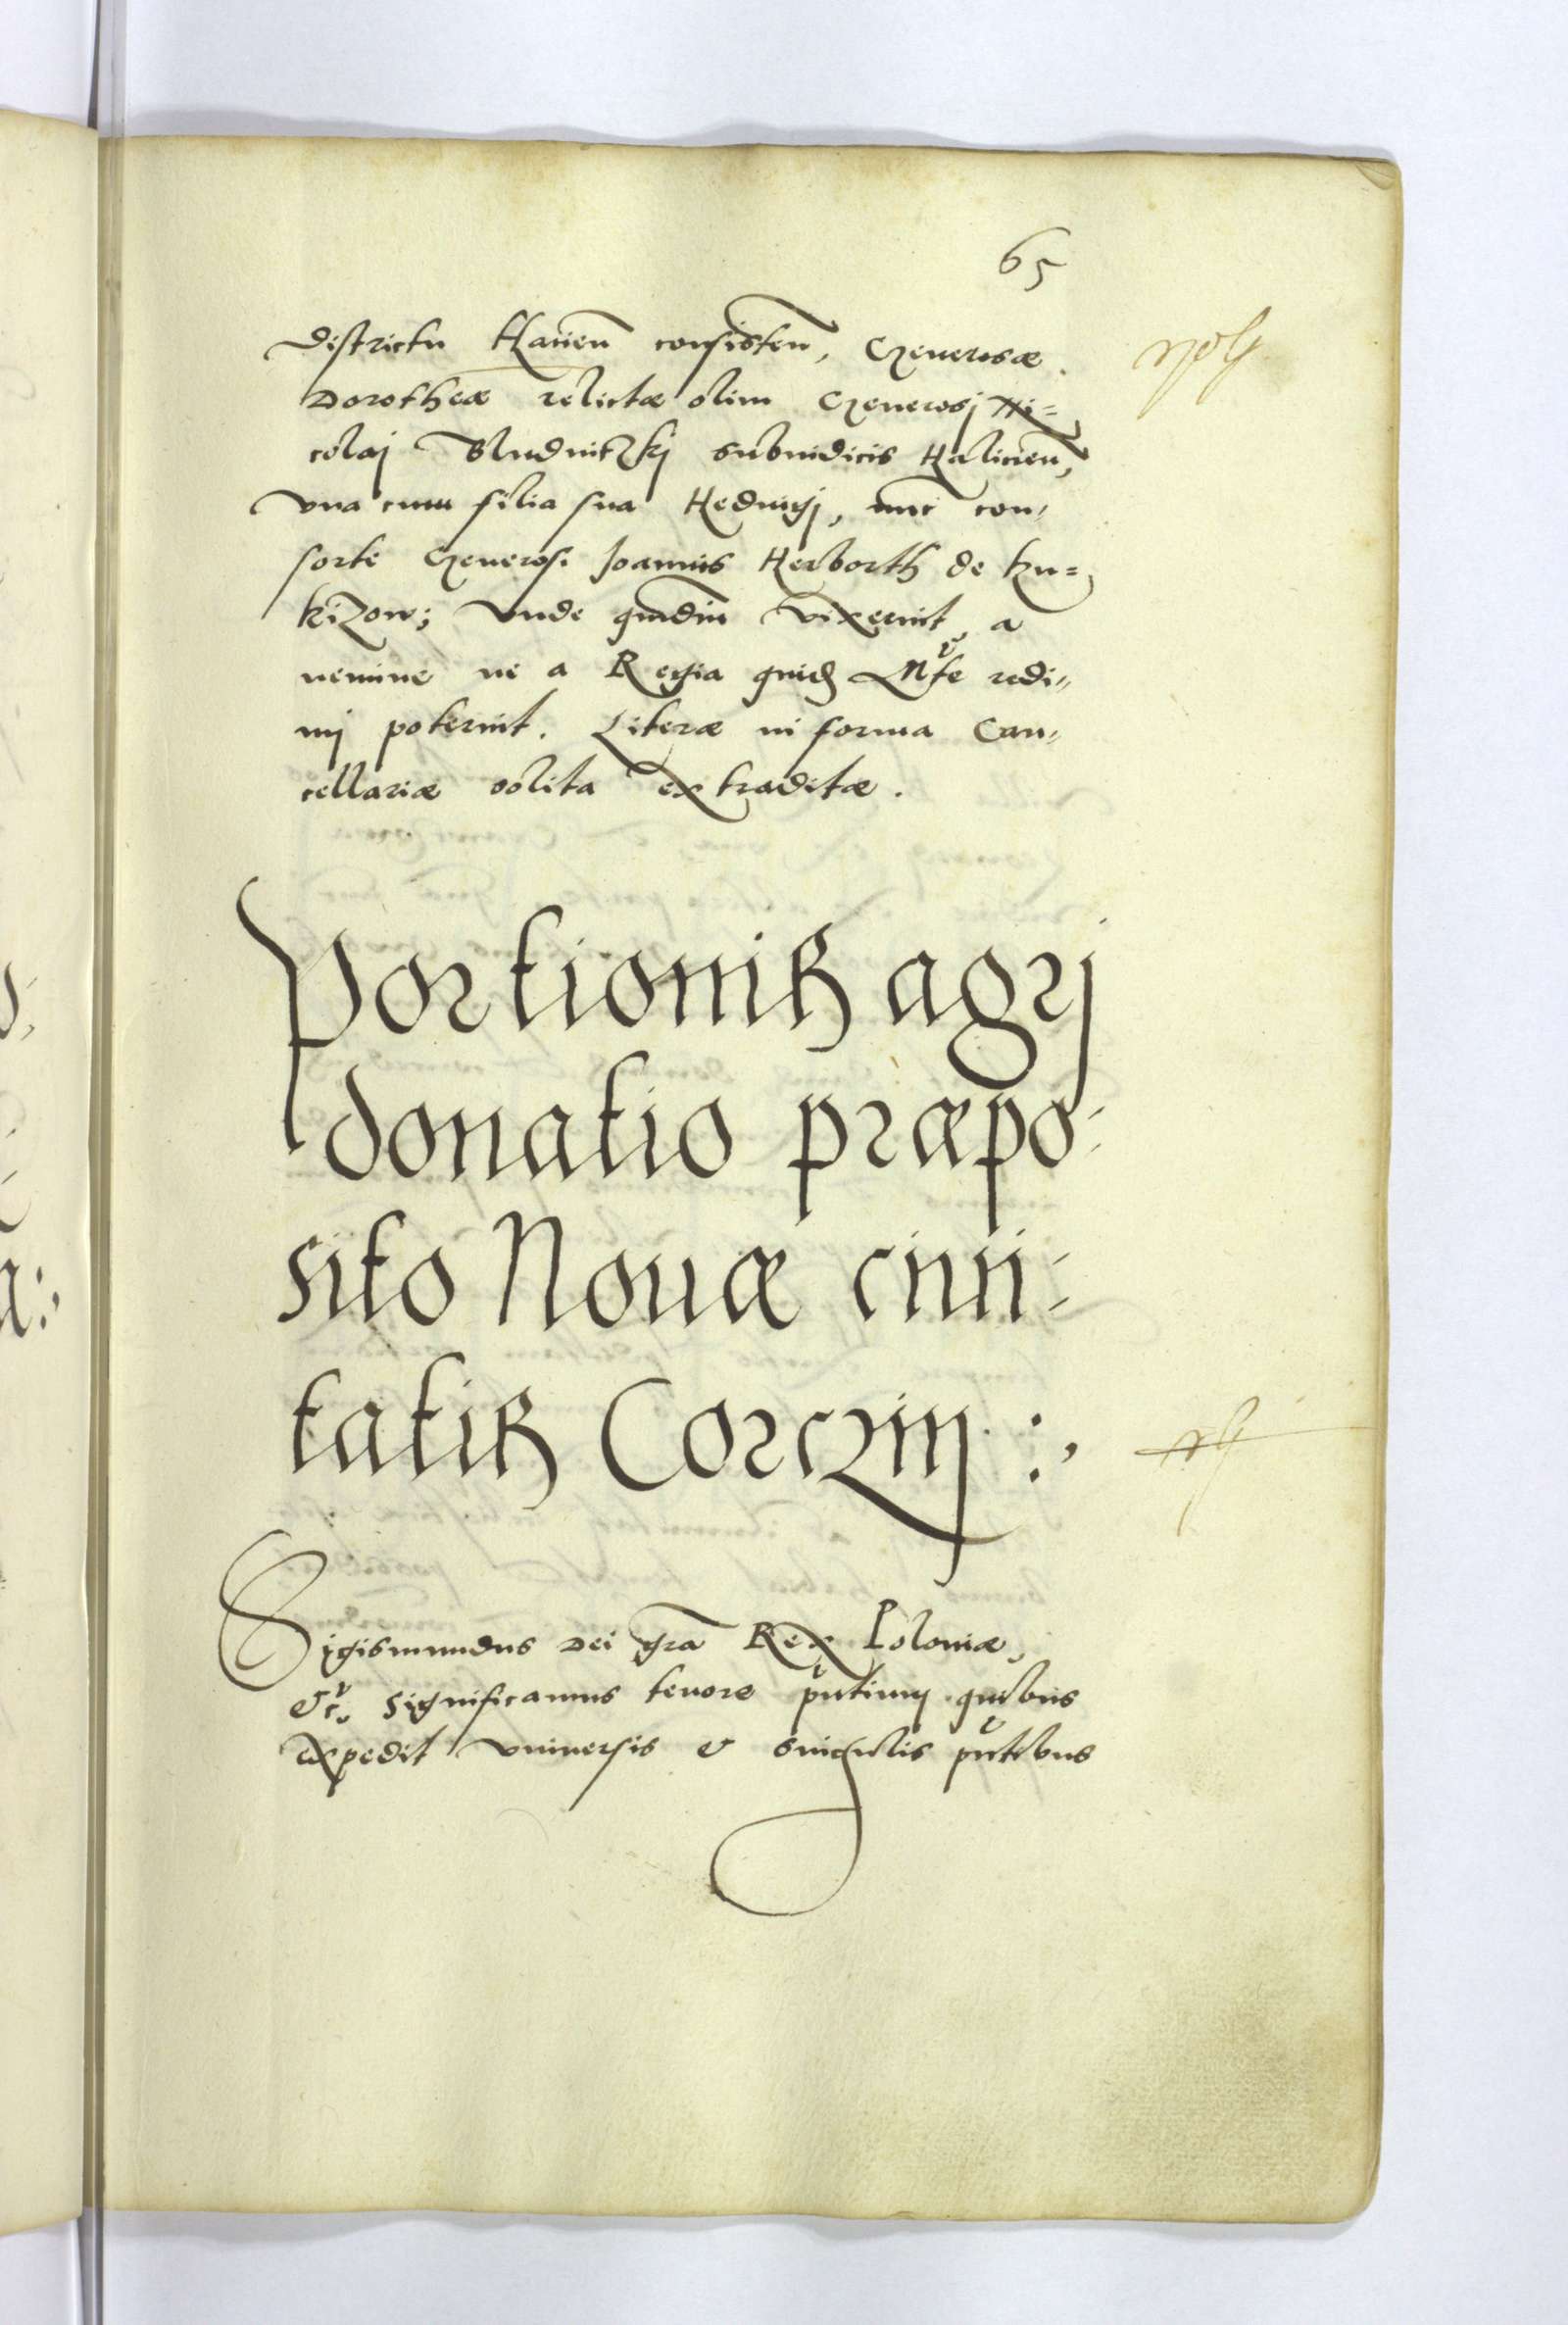 65
districtu Halicieñ consisteñ, Generosæ
Dorotheæ relictæ olim Generosj Ni=
colaj Bludnitzkj subiudicis Halicieñ,
vna cum filia sua Heduigj, nunc con,
sorte Generosi Joannis Herborth de Ku=
kizow; Vnde quãdiu vixerint, a
nemine ne a Regia quidẽ Mte redi,,
mj poterint. Literæ in forma Can,,
cellariæ solita extraditæ.
Portionis agrj
donatio præpo-
sito Nouæ ciui-
tatis Corczin :,
Sigismundus Dei gra Rex Poloniæ,
&c. Significamus tenore pñtium quibus
expedit vniuersis & singulis pñtibus